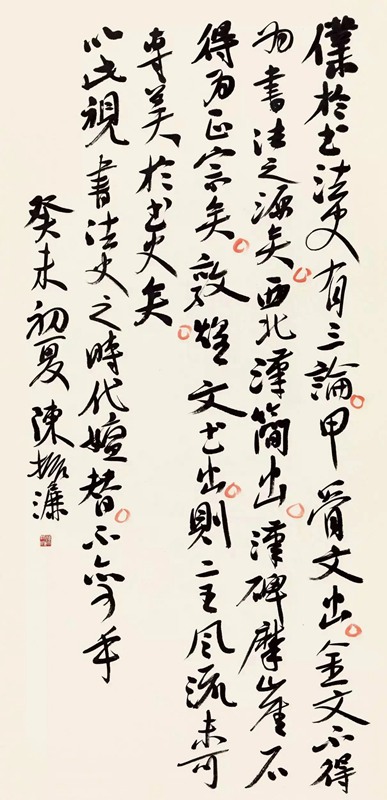 僕於书法史有三論甲骨文出金文不得
为書法之源矣西北漢簡出漢碑摩崖不
得为正宗矣敦煌文书出則二王风流未可
專美於书史矣
以此視書法史之時代嬗替不亦可乎
癸未初夏陳振濂